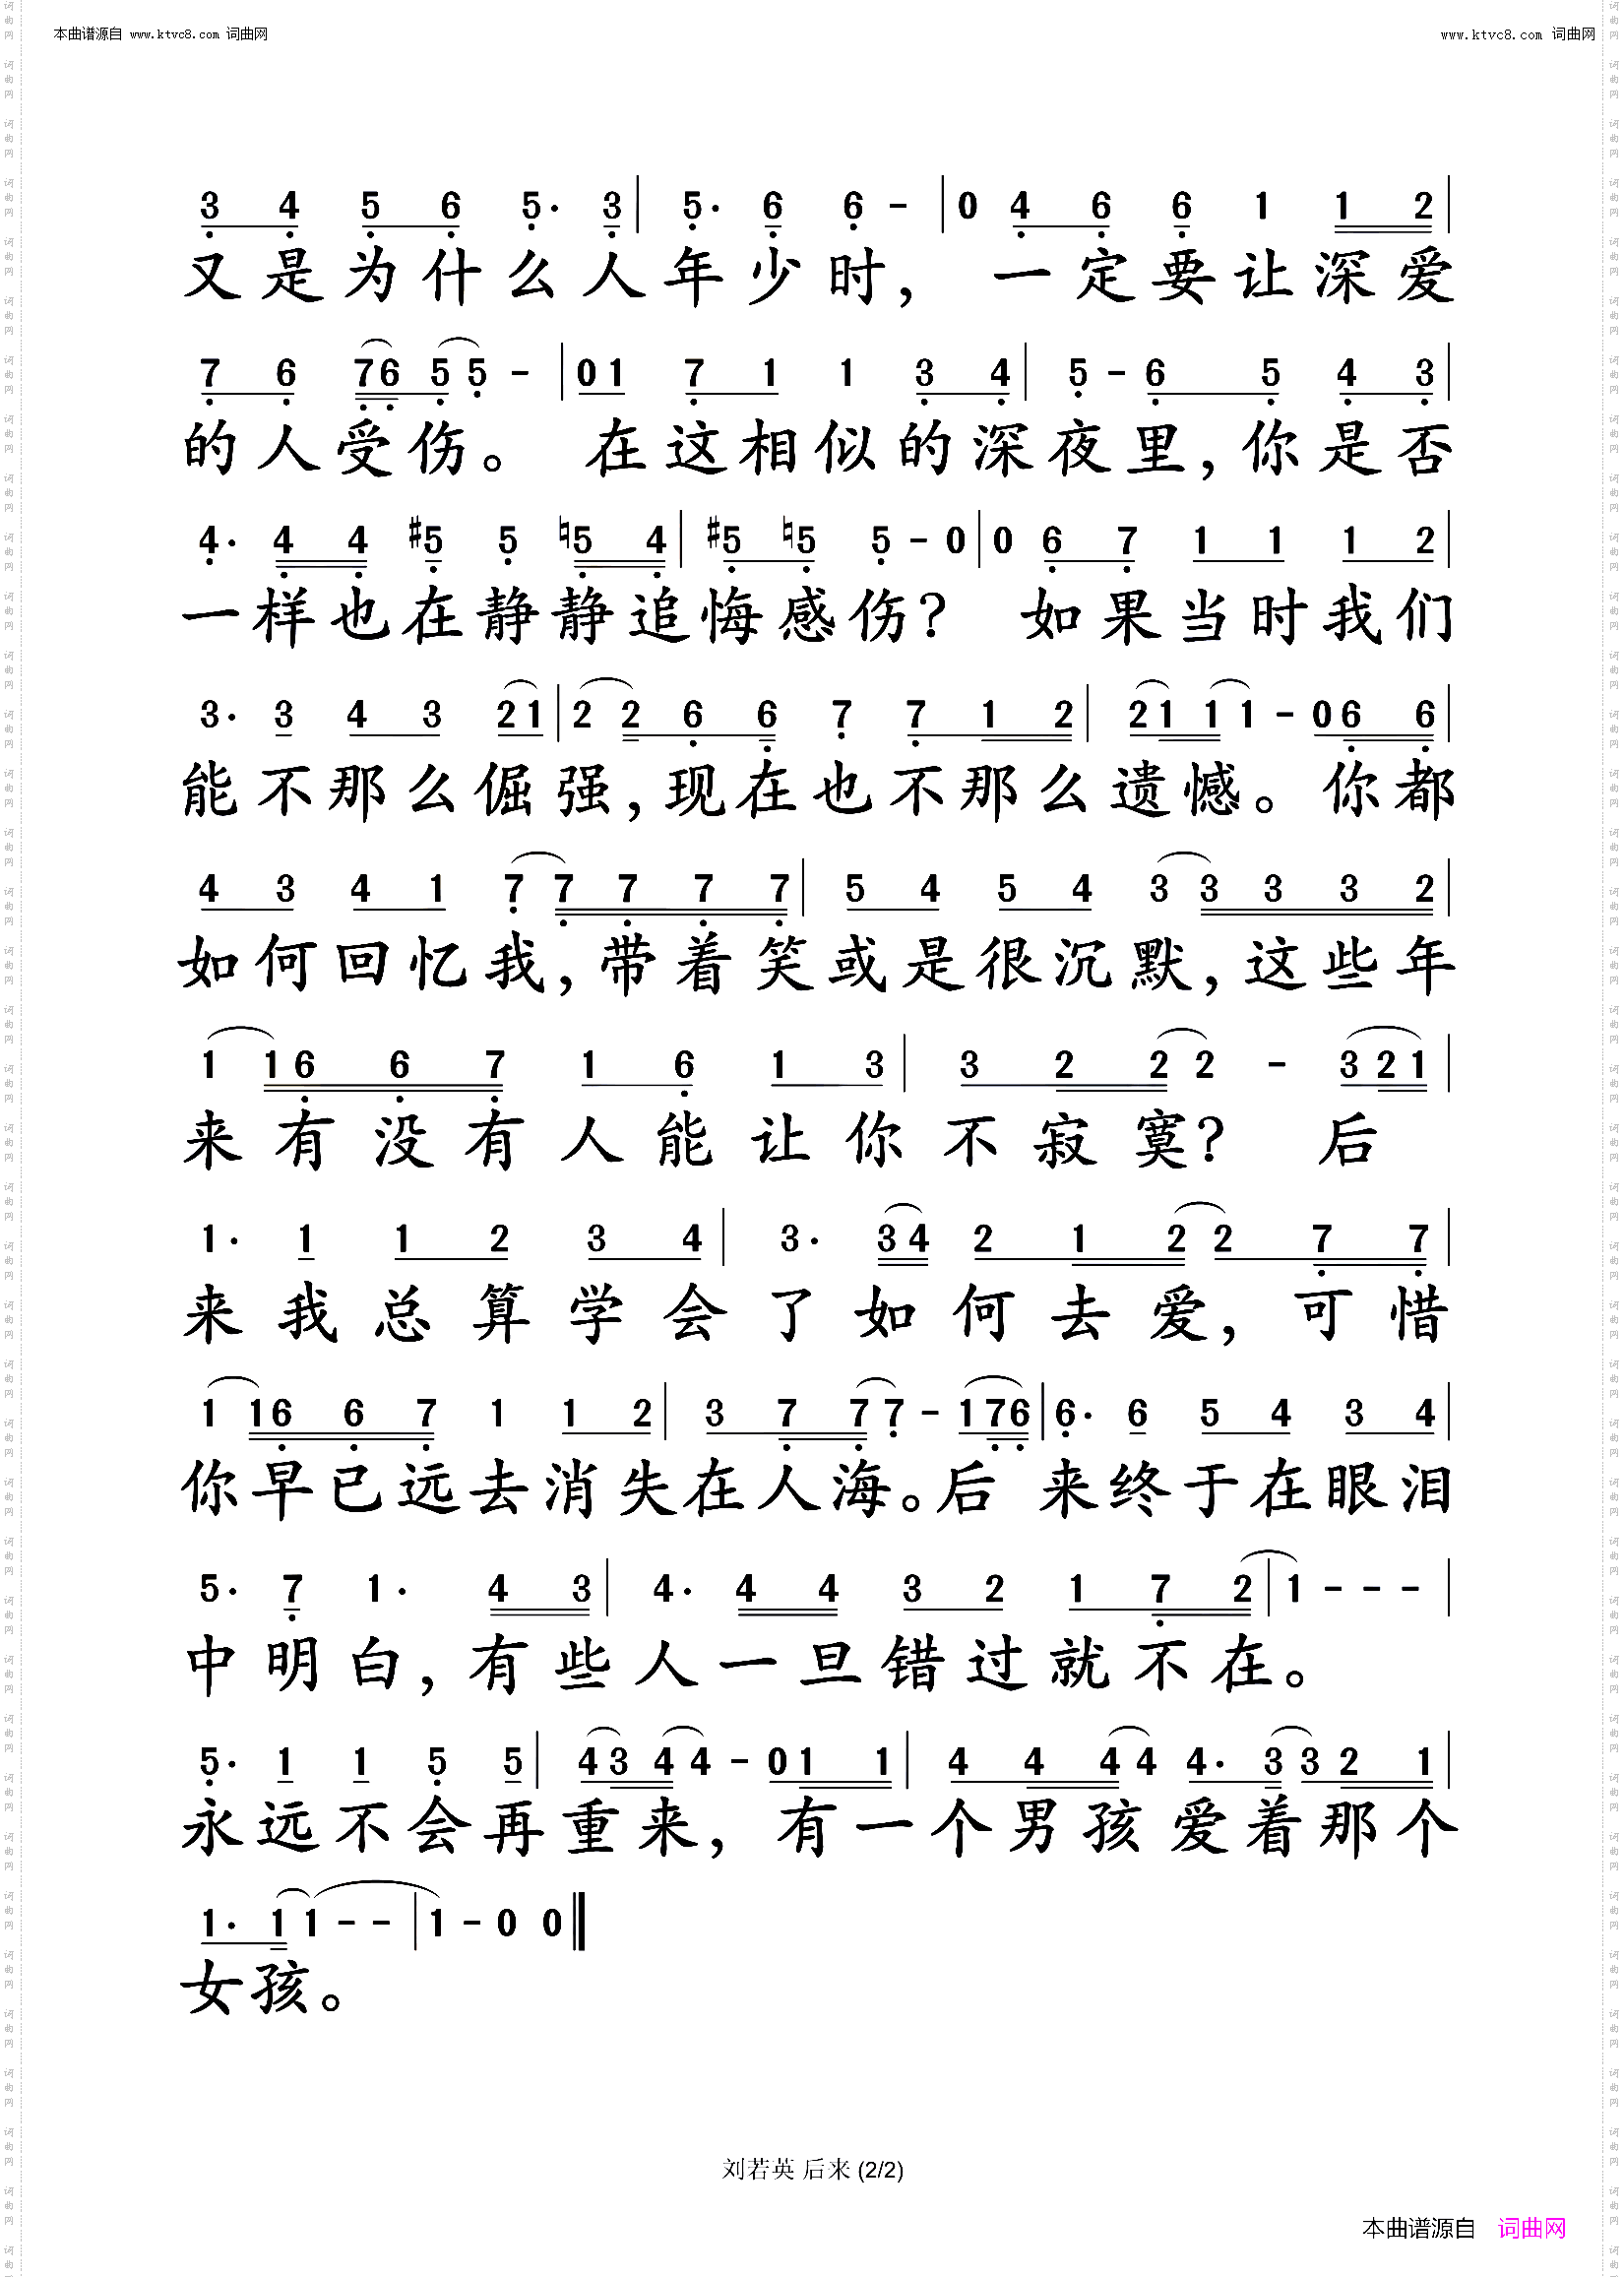 本曲谱源自 www.ktvc8.com 词曲网
www.ktvc8.com 词曲网
3 4 5 6 5· 3 | 5· 6 6 - | 0 4 6 6 1 1 2 |
又是为什么人年少时，一定要让深爱
7 6 7 6 5 5 - | 0 1 7 1 1 3 4 | 5 - 6 5 4 3 |
的人受伤。在这相似的深夜里，你是否
4· 4 4 #5 5 ♮5 4 | #5 ♮5 5 - 0 | 0 6 7 1 1 1 2 |
一样也在静静追悔感伤？如果当时我们
3· 3 4 3 2 1 | 2 2 6 6 7 7 1 2 | 2 1 1 1 - 0 6 6 |
能不那么倔强，现在也不那么遗憾。你都
4 3 4 1 7 7 7 7 7 | 5 4 5 4 3 3 3 3 2 |
如何回忆我，带着笑或是很沉默，这些年
1 1 6 6 7 1 6 1 3 | 3 2 2 2 - 3 2 1 |
来有没有人能让你不寂寞？后
1· 1 1 2 3 4 | 3· 3 4 2 1 2 2 7 7 |
来我总算学会了如何去爱，可惜
1 1 6 6 7 1 1 2 | 3 7 7 7 - 1 7 6 | 6· 6 5 4 3 4 |
你早已远去消失在人海。后来终于在眼泪
5· 7 1· 4 3 | 4· 4 4 3 2 1 7 2 | 1 - - - |
中明白，有些人一旦错过就不在。
5· 1 1 5 5 | 4 3 4 4 - 0 1 1 | 4 4 4 4 4· 3 3 2 1 |
永远不会再重来，有一个男孩爱着那个
1· 1 1 - - | 1 - 0 0 ‖
女孩。
刘若英 后来 (2/2)
本曲谱源自 词曲网